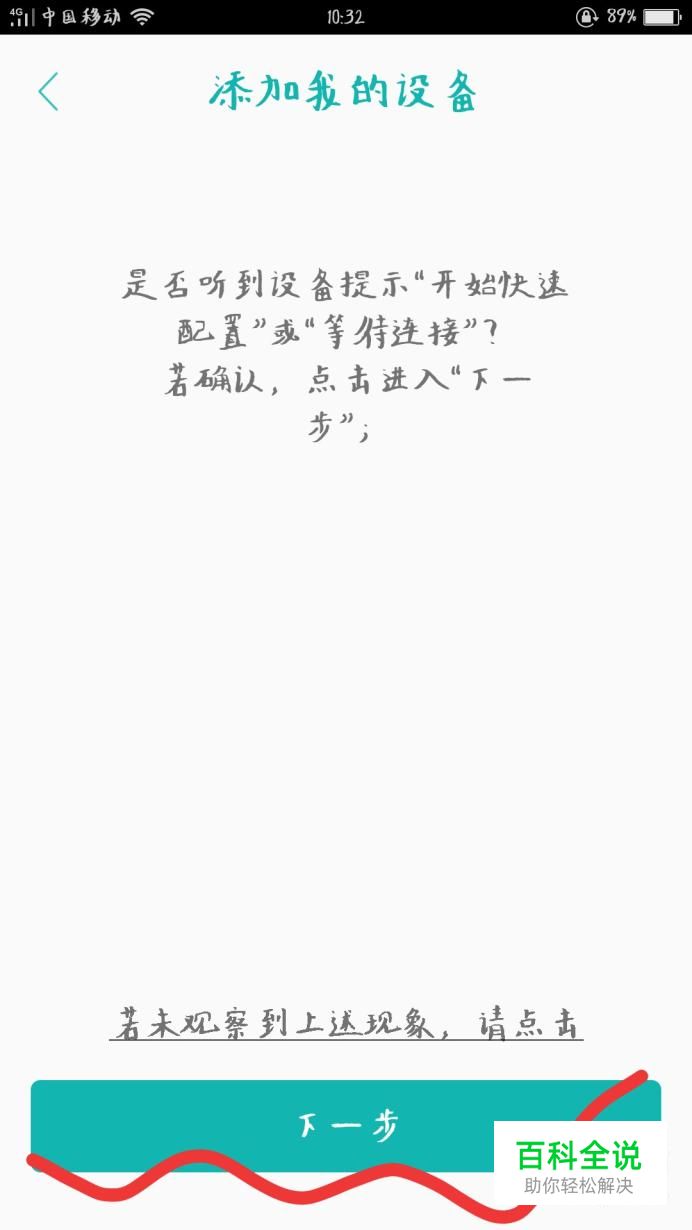 4G 中国移动 10:32 89%
添加我的设备
是否听到设备提示“开始快速
配置”或“等待连接”？
若确认，点击进入“下一
步”；
若未观察到上述现象，请点击
下一步
百科全说
助你轻松解决